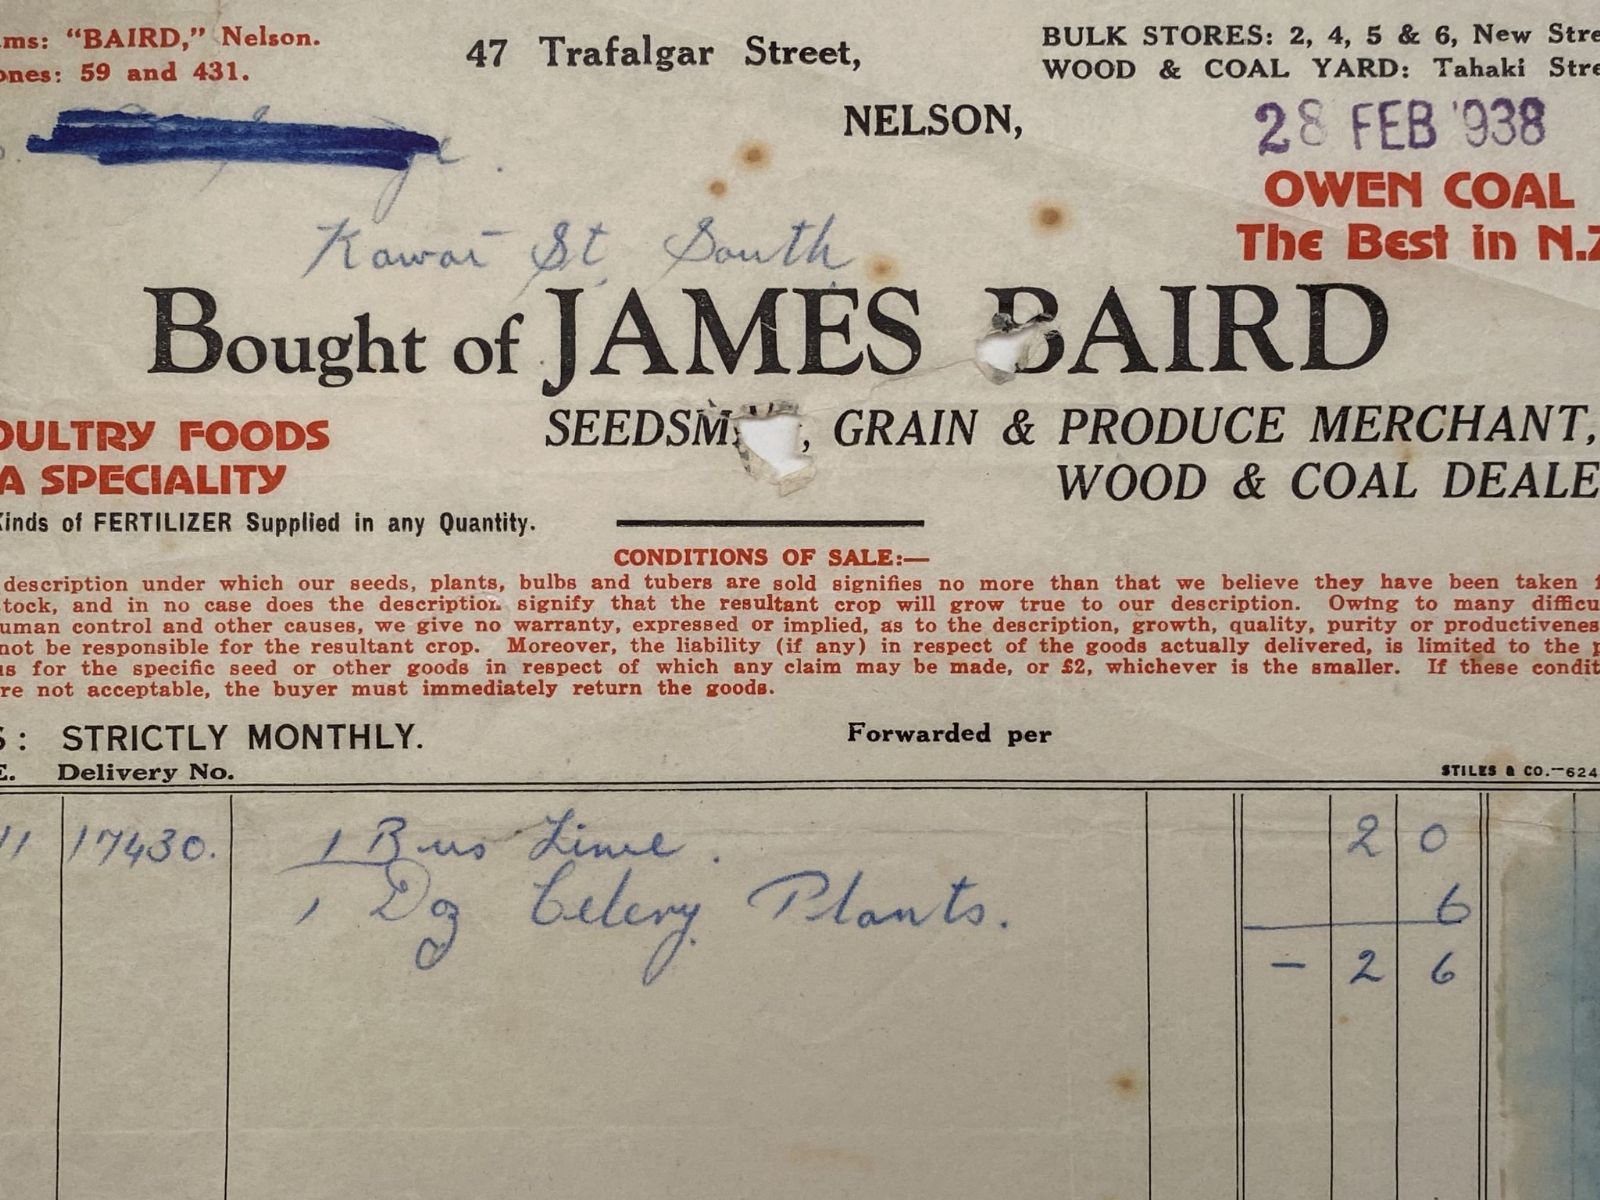 ms: "BAIRD," Nelson.
ones: 59 and 431.
47 Trafalgar Street,
NELSON,
BULK STORES: 2, 4, 5 & 6, New Stre
WOOD & COAL YARD: Tahaki Stre
28 FEB '938
OWEN COAL
The Best in N.Z
Kawai St. South
Bought of JAMES BAIRD
OULTRY FOODS
A SPECIALITY
Kinds of FERTILIZER Supplied in any Quantity.
SEEDSM , GRAIN & PRODUCE MERCHANT,
WOOD & COAL DEALE
CONDITIONS OF SALE:—
description under which our seeds, plants, bulbs and tubers are sold signifies no more than that we believe they have been taken f
tock, and in no case does the description signify that the resultant crop will grow true to our description. Owing to many difficu
uman control and other causes, we give no warranty, expressed or implied, as to the description, growth, quality, purity or productivenes
not be responsible for the resultant crop. Moreover, the liability (if any) in respect of the goods actually delivered, is limited to the p
us for the specific seed or other goods in respect of which any claim may be made, or £2, whichever is the smaller. If these condit
re not acceptable, the buyer must immediately return the goods.
S: STRICTLY MONTHLY.
Forwarded per
E. Delivery No.
STILES & CO.—624
11 17430. 1 Bus Lime. 2 0
1 Doz Celery Plants. 6
– 2 6